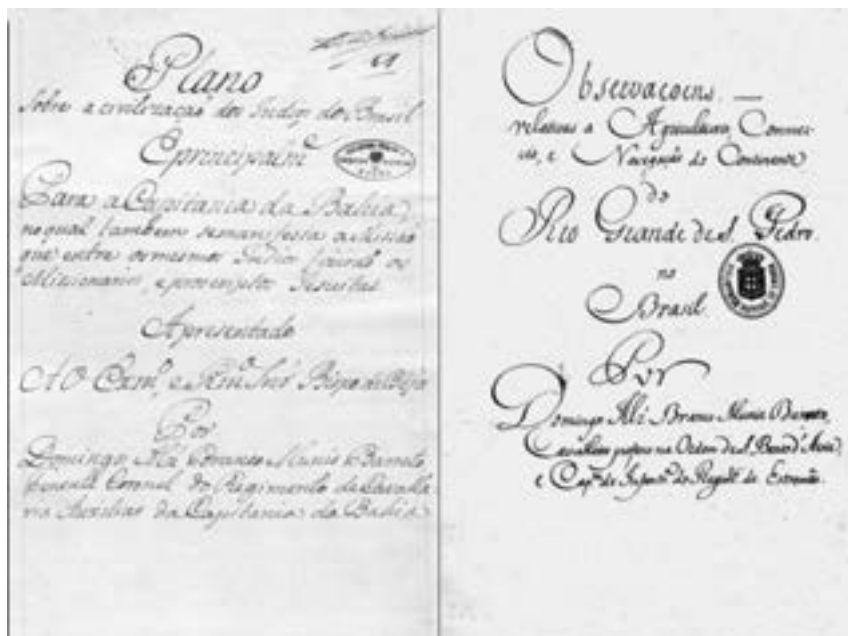 Plano
Sobre a civilizaçaõ dos Indios do Brasil
E principalm.e
Para a Capitania da Bahia,
no qual tambem se manifesta a Missaõ
que entre os mesmos Indios fizeraõ os
Missionarios, e proscriptos Jesuitas.
Apresentado
AO Exm.o e Rm.o Snr. Bispo de Beja
Por
Domingos Alz' Branco Muniz Barreto
Tenente Coronel do Regimento de Cavalla-
ria Auxiliar da Capitania da Bahia
Observacoens. —
relativas a Agricultura, Commer-
cio, e Navegação do Continente
do
Rio Grande de S. Pedro.
no
Brasil.
Por
Domingos Alz Branco Muniz Barreto,
Cavalleiro professo na Ordem de S. Bento d'Aviz,
e Cap.m de Infant.a do Regim.to de Estremôs.